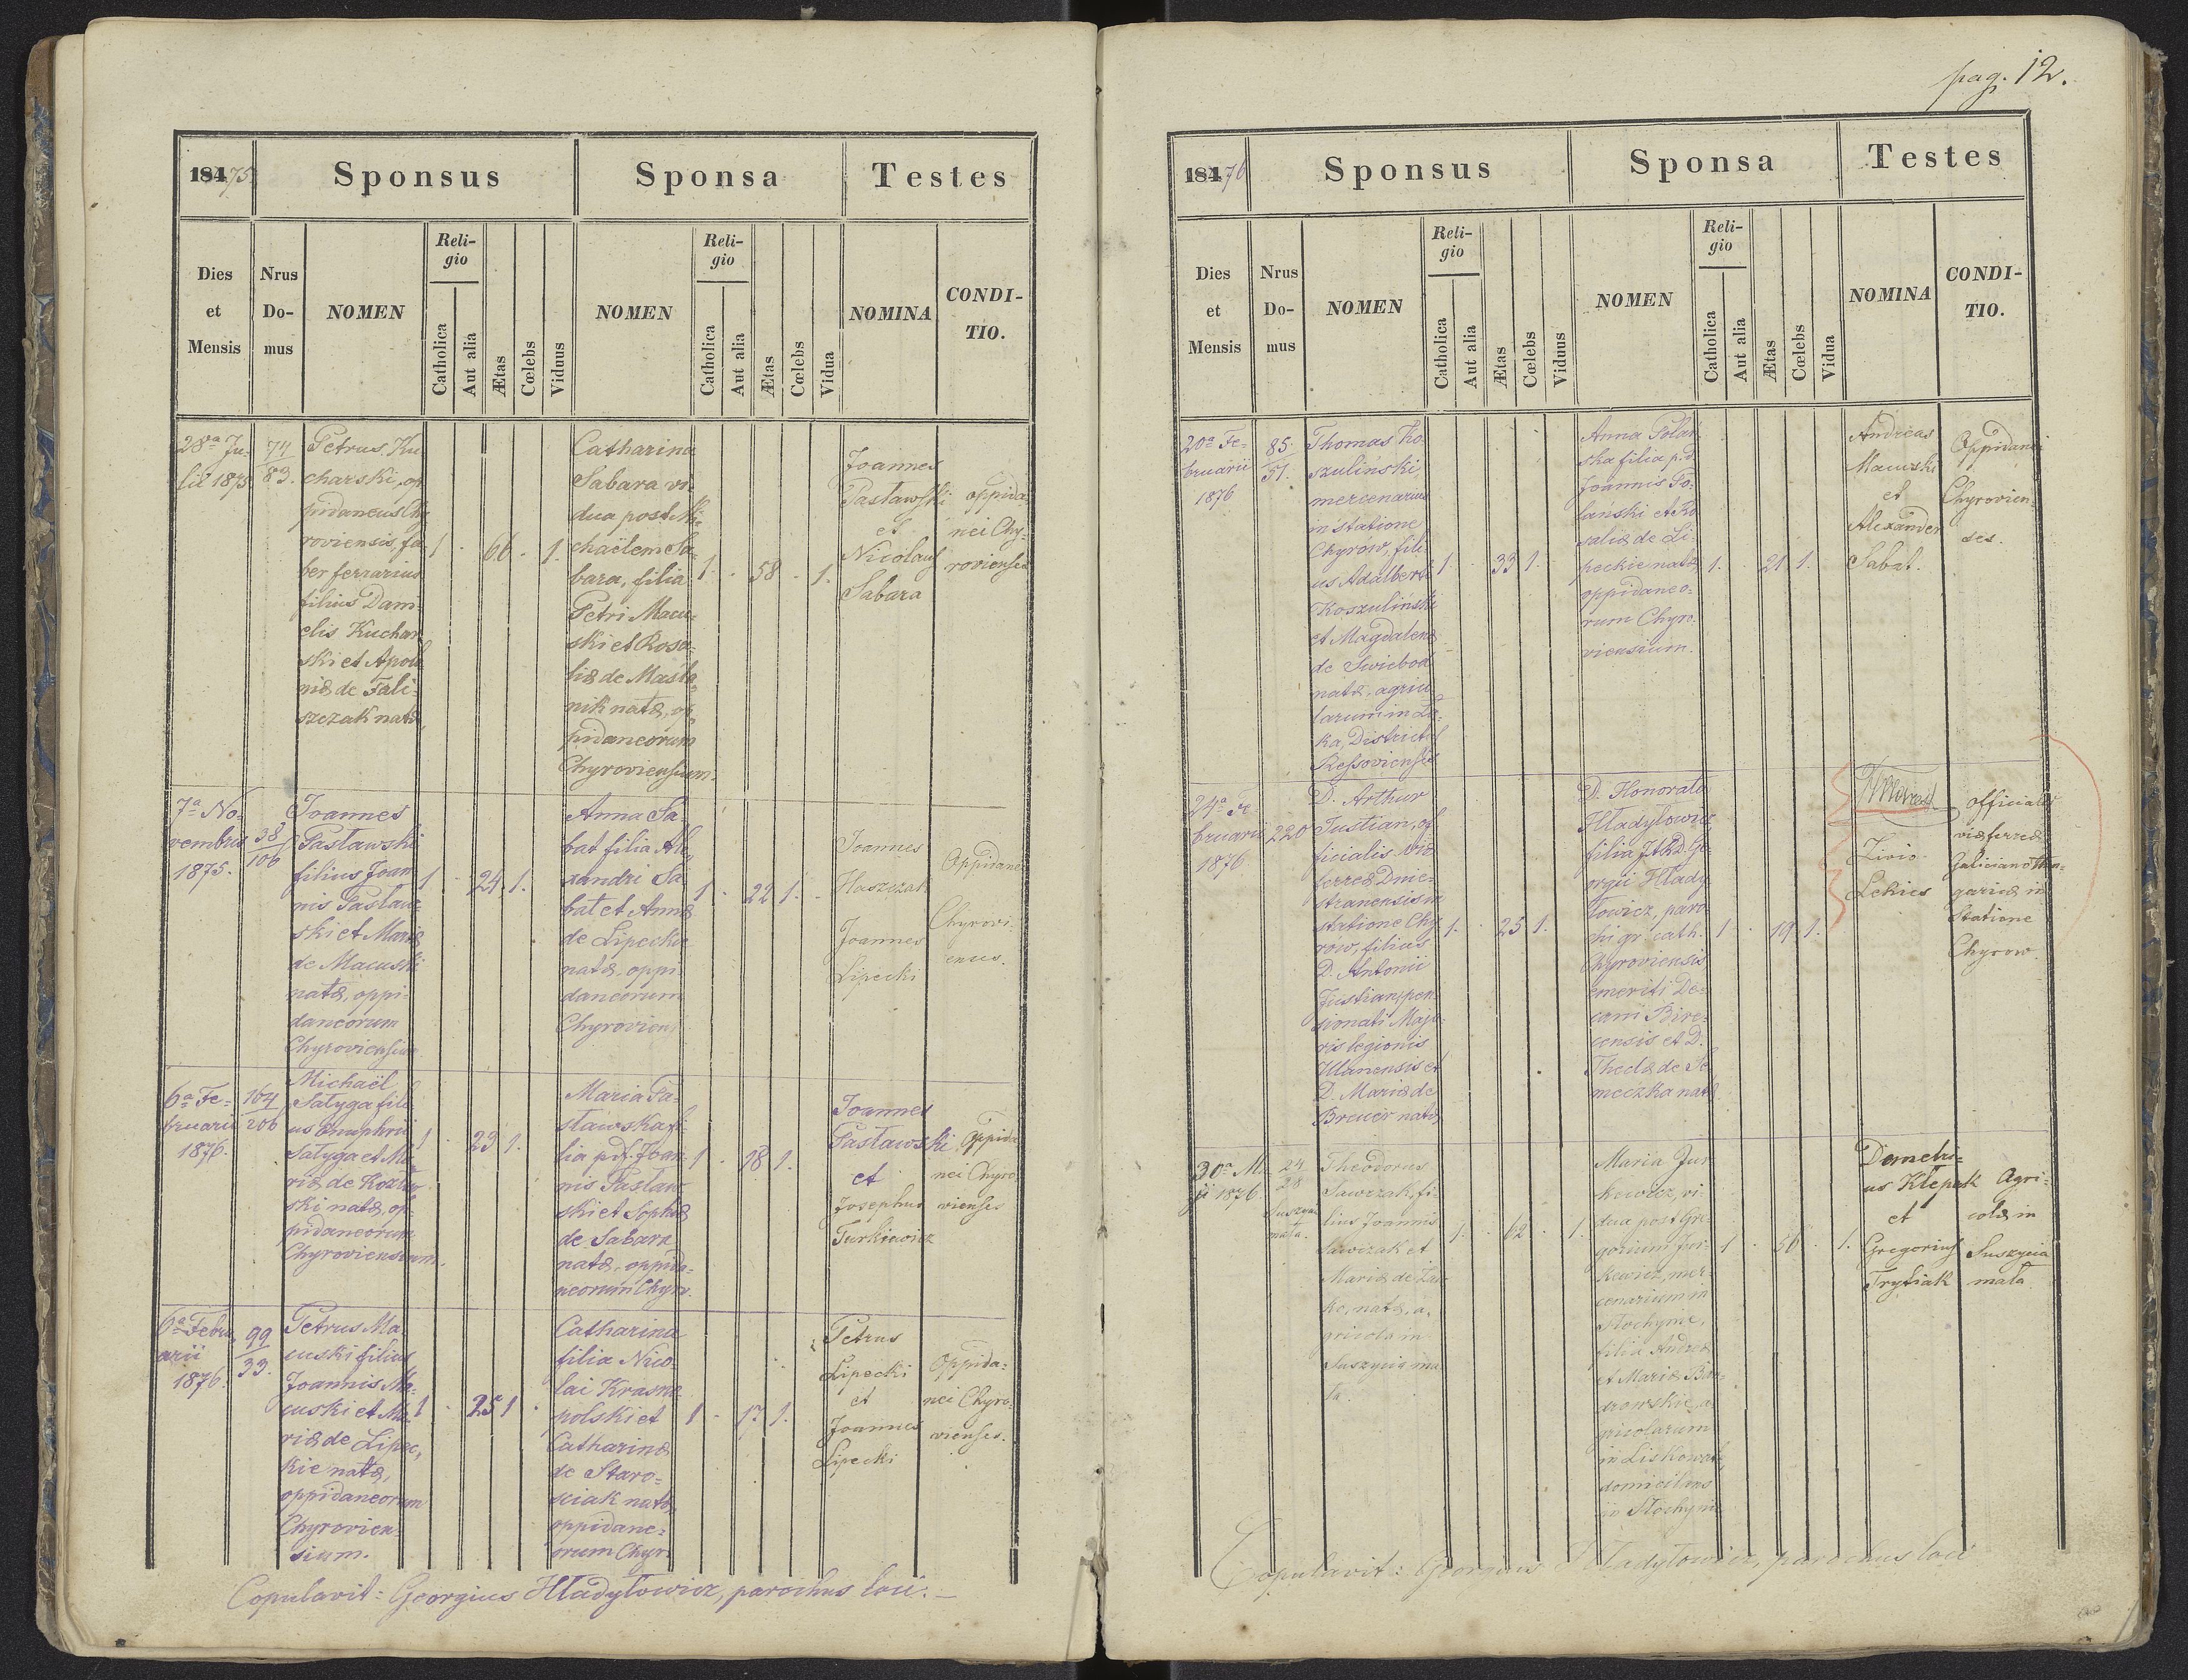 184 75
Sponsus
Sponsa
Testes
Dies
et
Mensis
Nrus
Do-
mus
NOMEN
Reli-
gio
Catholica
Aut alia
Ætas
Cœlebs
Viduus
NOMEN
Reli-
gio
Catholica
Aut alia
Ætas
Cœlebs
Vidua
NOMINA
CONDI-
TIO.
28va Ju-
lii 1875
74
83.
Petrus Ku
charski, op
pidaneus Chy
roviensis, fa
ber ferrarius
filius Dani
elis Kuchar
ski et Apolo
niæ de Fali-
szczak natæ,
1 - 66 - 1.
Catharina
Sabara vi-
dua post Mi-
chaëlem Sa-
bara, filia
Petri Macu-
ski et Rosa-
liæ de Masta-
nik natæ, op
pidaneorum
Chyroviensium.
1. - 58 - 1.
Joannes
Pasławski
et
Nicolaus
Sabara
oppida-
nei Chy-
rovienses
7a No-
vembris
1875.
38
106
Joannes
Pasławski
filius Joan
nis Pasław-
ski et Mariæ
de Macuski
natæ, oppi-
daneorum
Chyroviensium
1 - 24 1.
Anna Sa
bat filia Ale
xandri Sa
bat et Annæ
de Lipeckie
natæ, oppi
daneorum
Chyroviens
1 - 22 1. -
Joannes
Haszczak
Joannes
Lipecki
Oppidanei
Chyrovi-
enses.
6a Fe-
bruarii
1876.
164
206
Michaël
Satyga fili-
us Onuphrii
Satyga et Ma
riæ de Kozłow
ski natæ, op-
pidaneorum
Chyroviensium.
1 - 23 1.
Maria Pa-
sławska fi-
lia pdf. Joan
nis Pasław
ski et Sophiæ
de Sabara
natæ, oppida-
neorum Chyro.
1 - 18 1.
Joannes
Pasławski
et
Josephus
Turkiewicz
Oppida
nei Chyro
vienses
6a Febru
arii
1876.
99
33.
Petrus Ma
cuski filius
Joannis Ma-
cuski et Ma-
riæ de Lipec,
kie natæ,
oppidaneorum
Chyrovien-
sium.
1 - 25 1 .
Catharina
filia Nico-
lai Krasno
polski et
Catharinæ
de Staro-
sciak natæ,
oppidane-
orum Chyr.
1 - 17 1.
Petrus
Lipecki
et
Joannes
Lipecki
Oppida-
nei Chyro-
vienses.
Copulavit: Georgius Hładyłowicz, parochus loci. -
pag. 12.
184 76
Sponsus
Sponsa
Testes
Dies
et
Mensis
Nrus
Do-
mus
NOMEN
Reli-
gio
Catholica
Aut alia
Ætas
Cœlebs
Viduus
NOMEN
Reli-
gio
Catholica
Aut alia
Ætas
Cœlebs
Vidua
NOMINA
CONDI-
TIO.
20a Fe-
bruarii
1876
85.
51.
Thomas Ko
szulinski
mercenarius
in statione
Chyrów, fili
us Adalberti
Koszuliński
et Magdalenæ
de Swiebod
natæ, agrico
larum in Łą-
ka, Districtus
Ressoviensis
1 - 33 1.
Anna Polań
ska filia pd
Joannis Po-
lanski et Ro
saliæ de Li-
peckie natæ
oppidaneo-
rum Chyro-
viensium.
1. - 21 1.
Andreas
Macuski
et
Alexander
Sabat.
Oppidanei
Chyrovien-
ses.
24a Fe
bruarii
1876
220
D. Arthur
Justian, of
ficialis viæ
ferreæ Dnie-
stranensis in
statione Chy
row, filius
D. Antonii
Justian, pen
sionati Majo-
ris legionis
Ulanensis et
D. Mariæ de
Breuer natæ
1. - 25 1.
D. Honorata
Hładyłowicz,
filia JAD. Ge-
orgii Hłady
łowicz, paro-
chi gr. cath.
Chyroviensis
emeriti De-
cani Birc-
censis et D.
Theclæ de Se
meczka natæ
1 - 19 1.
Livio
Lekies
officiales
viæ ferreæ
Galiciano Hun-
gariæ in
Statione
Chyrow.
30a Ma
ji 1876.
24
28
Suszyca
mała.
Theodorus
Sawczak, fi-
lius Joannis
Sawczak et
Mariæ de
ko, natæ, a-
gricola in
Suszycia ma
ła.
1. - 62 - 1.
Maria Jur
kewicz, vi-
dua post Gre-
gorium Jur-
kewicz, mer-
cenarium in
Słochynie,
filia Andreæ
et Mariæ
a-
gricolarum
in Liskowat
domicilians
in Słochyni
1 - 56 - 1.
Demetri-
us Klepak
et
Gregorius
Trytiak
Agri-
colæ in
Suszycia
mała
Copulavit: Georgius Hładyłowicz, parochus loci